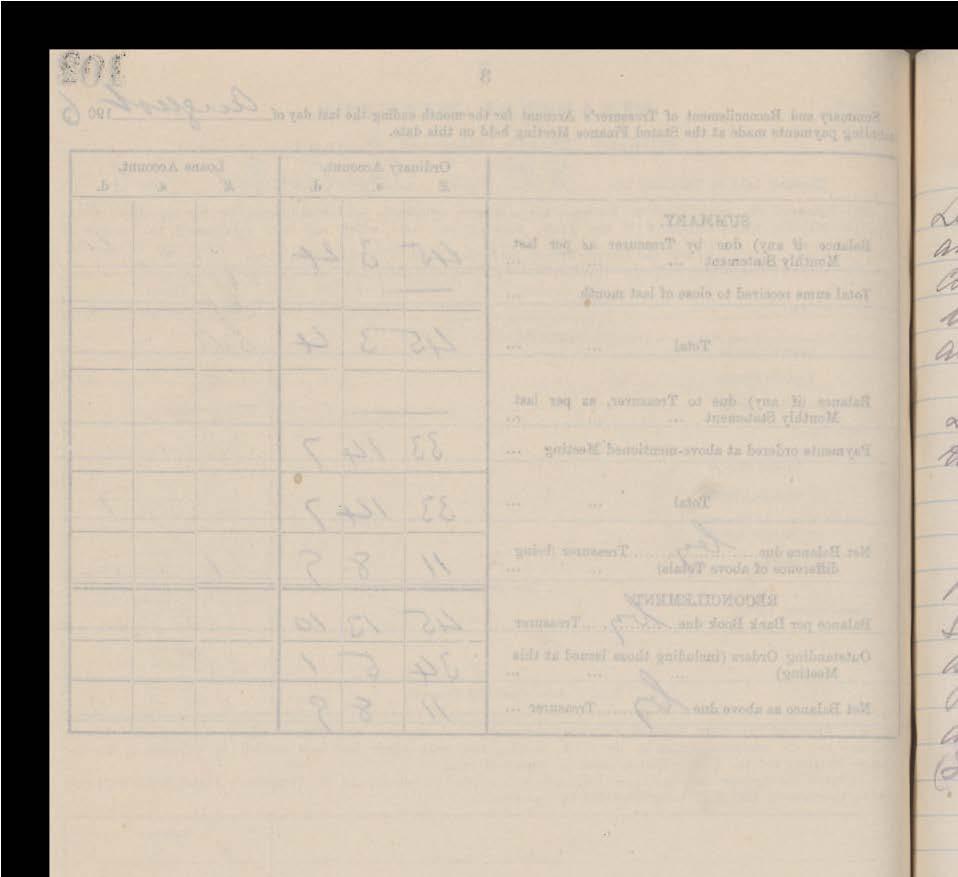 102
3
Summary and Reconcilement of Treasurer's Account for the month ending the last day of August 1906
including payments made at the Stated Finance Meeting held on this date.
Ordinary Account. Loans Account.
£ s. d. £ s. d.
SUMMARY.
Balance (if any) due by Treasurer as per last
Monthly Statement ... ... ... 45 3 4
Total sums received to close of last month ...
Total ... ... 45 3 4
Balance (if any) due to Treasurer, as per last
Monthly Statement ... ...
Payments ordered at above-mentioned Meeting ... 33 14 7
Total ... ... 33 14 7
Net Balance due by Treasurer (being
difference of above Totals) ... ... 11 8 9
RECONCILEMENT.
Balance per Bank Book due by Treasurer 45 13 10
Outstanding Orders (including those issued at this
Meeting) ... ... ... 34 5 1
Net Balance as above due by Treasurer ... 11 8 9